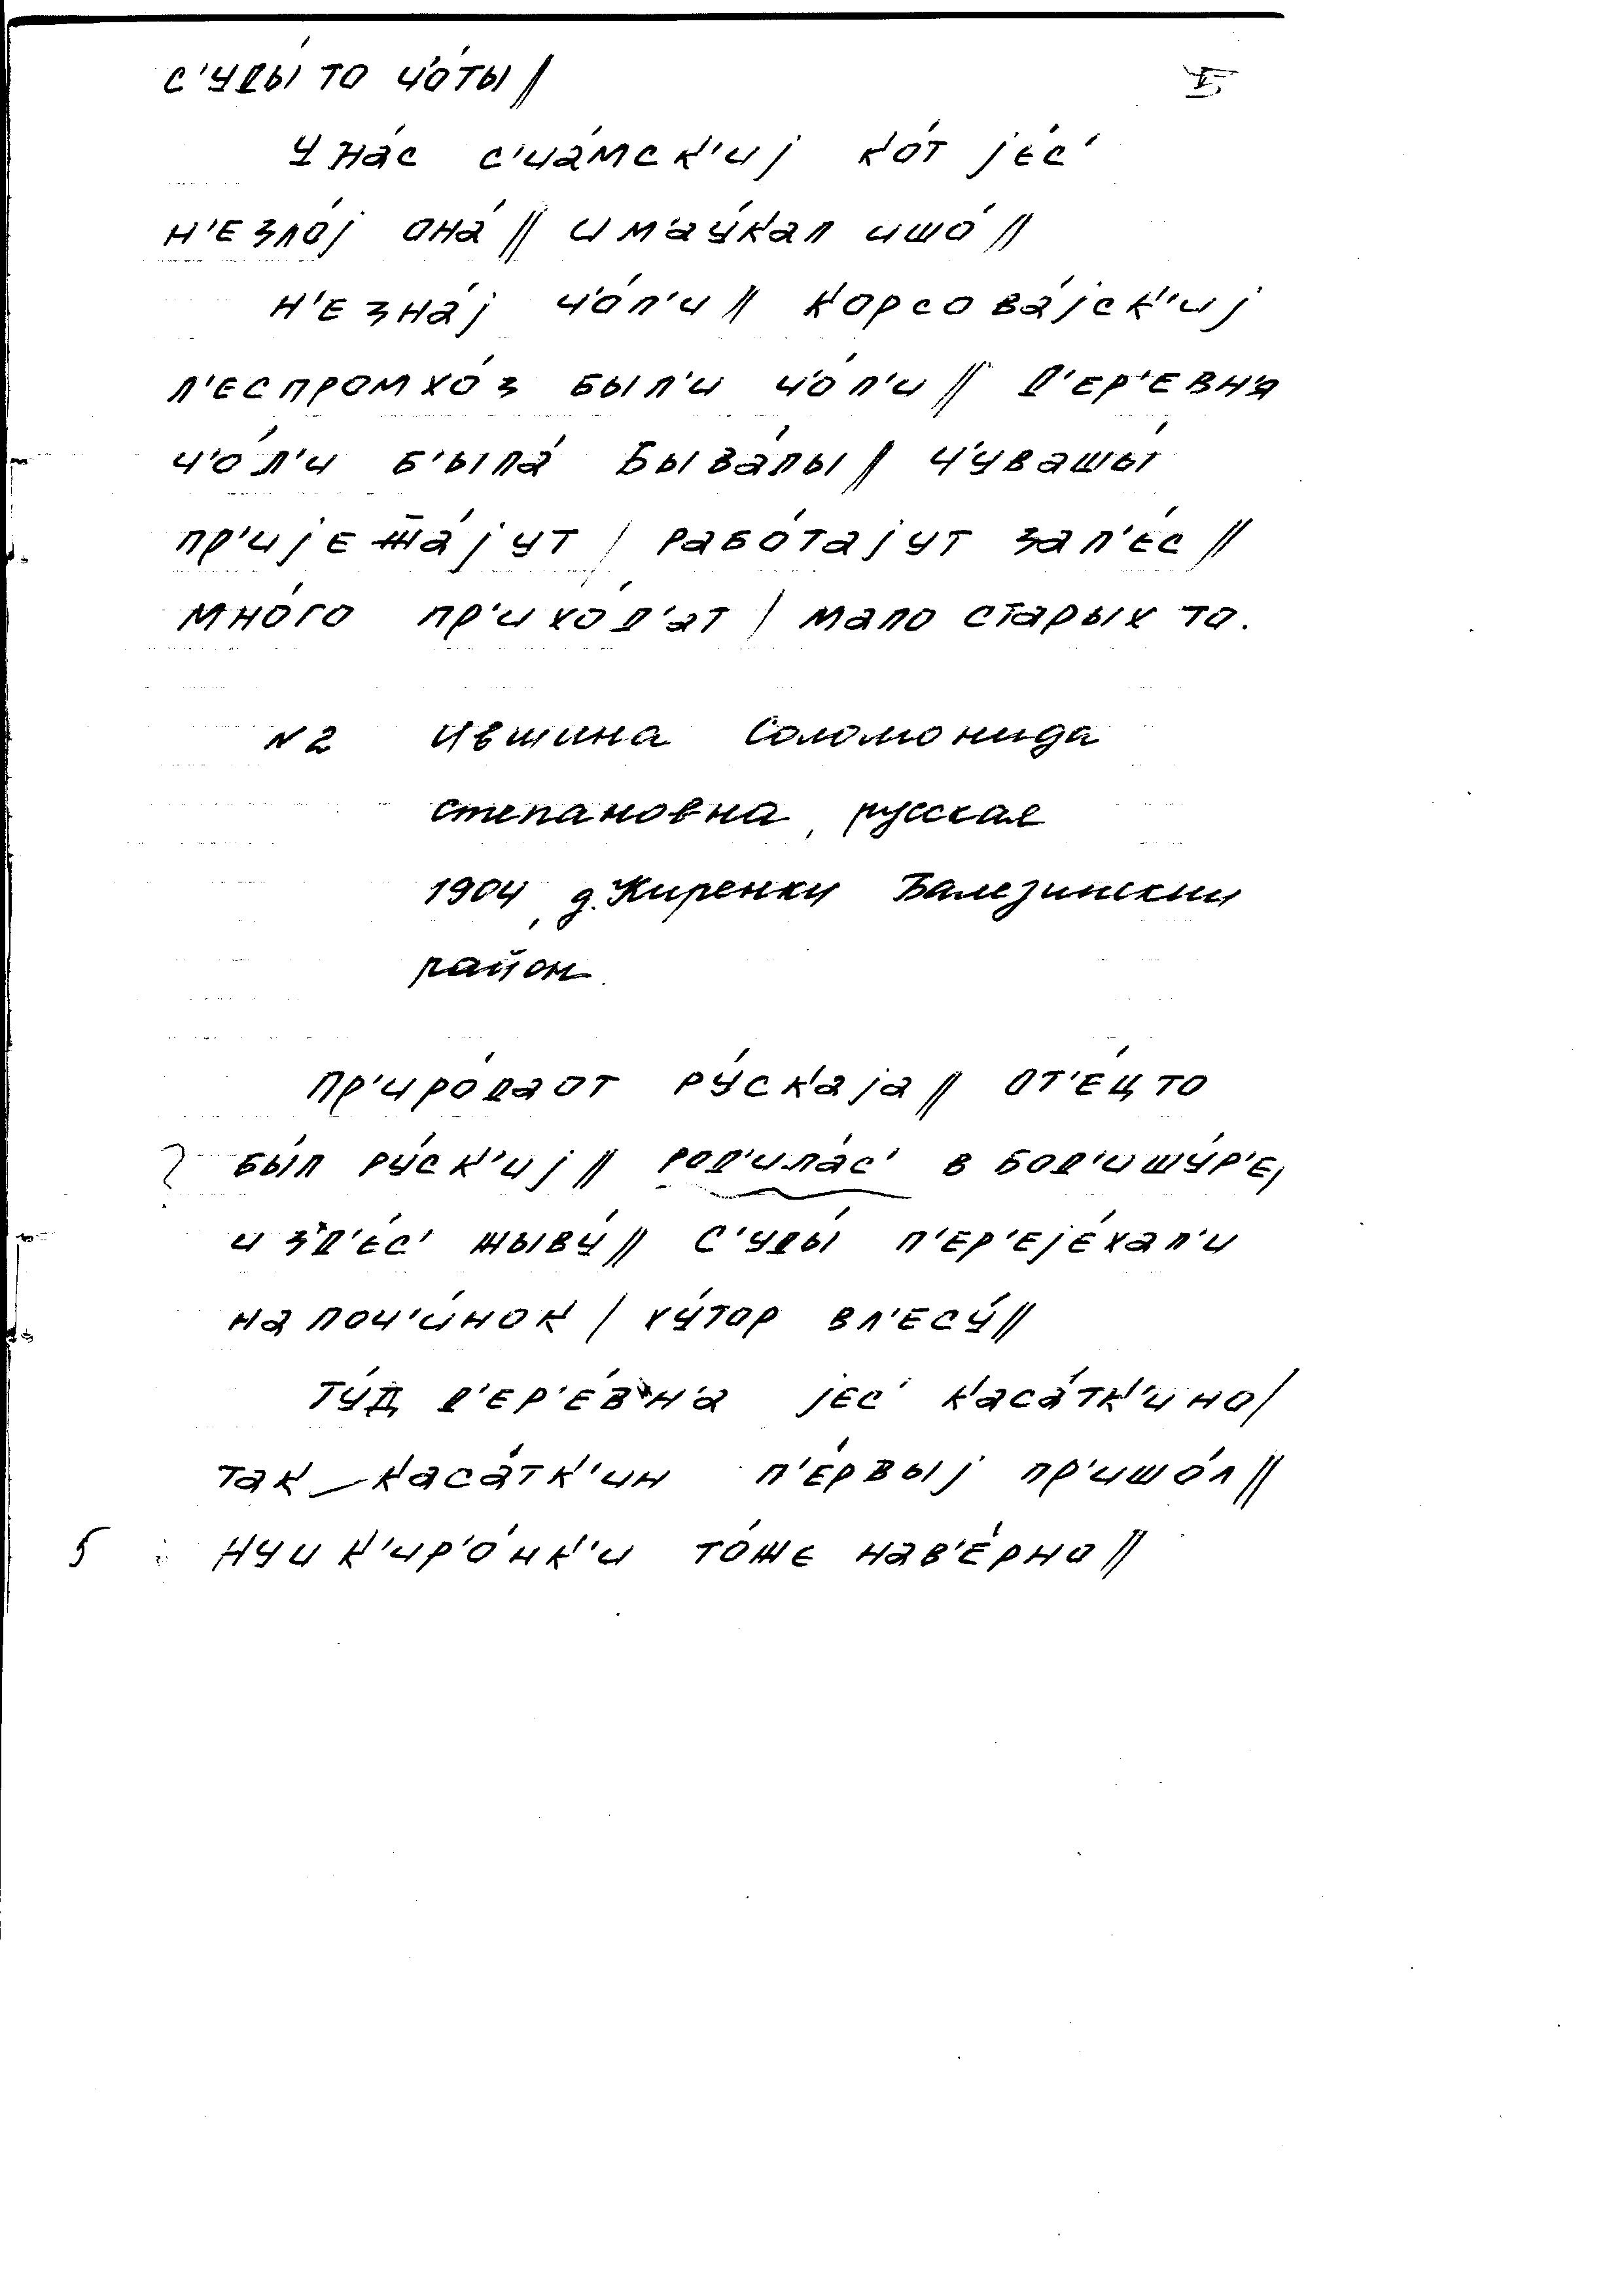 с'уды́ то ч'о́ты //
У на́с с'иа́мск'иj ко́т jе́с'
н'е зло́j она́ // и м'ау́кал ишо́ //
н'е зна́j ч'о́л'и // корсова́jск'иj
л'еспромхо́з был'и ч'о́л'и // д'ер'евн'я
ч'о́л'и б'ыла́ Быва́лы // ч'увашы́
пр'иjежа́jут / рабо́таjут за л'е́с //
мно́го пр'ихо́д'ат / мало старых то.
N 2 Ившина Соломонида
степановна, русская
1904, д. Киренки Балезинский
район.
Пр'иро́да от ру́скаjа // от'е́ц то
бы́л ру́ск'иj // род'ила́с' в бод'ишу́р'е,
и зд'е́с' жыву́ // с'уды́ п'ер'еjе́хал'и
на поч'и́нок / ху́тор в л'есу́ //
ту́д д'ер'е́вн'а jес' каса́тк'ино /
так каса́тк'ин п'е́рвыj пр'ишо́л //
5 ну и к'ир'о́нк'и то́же нав'е́рно //